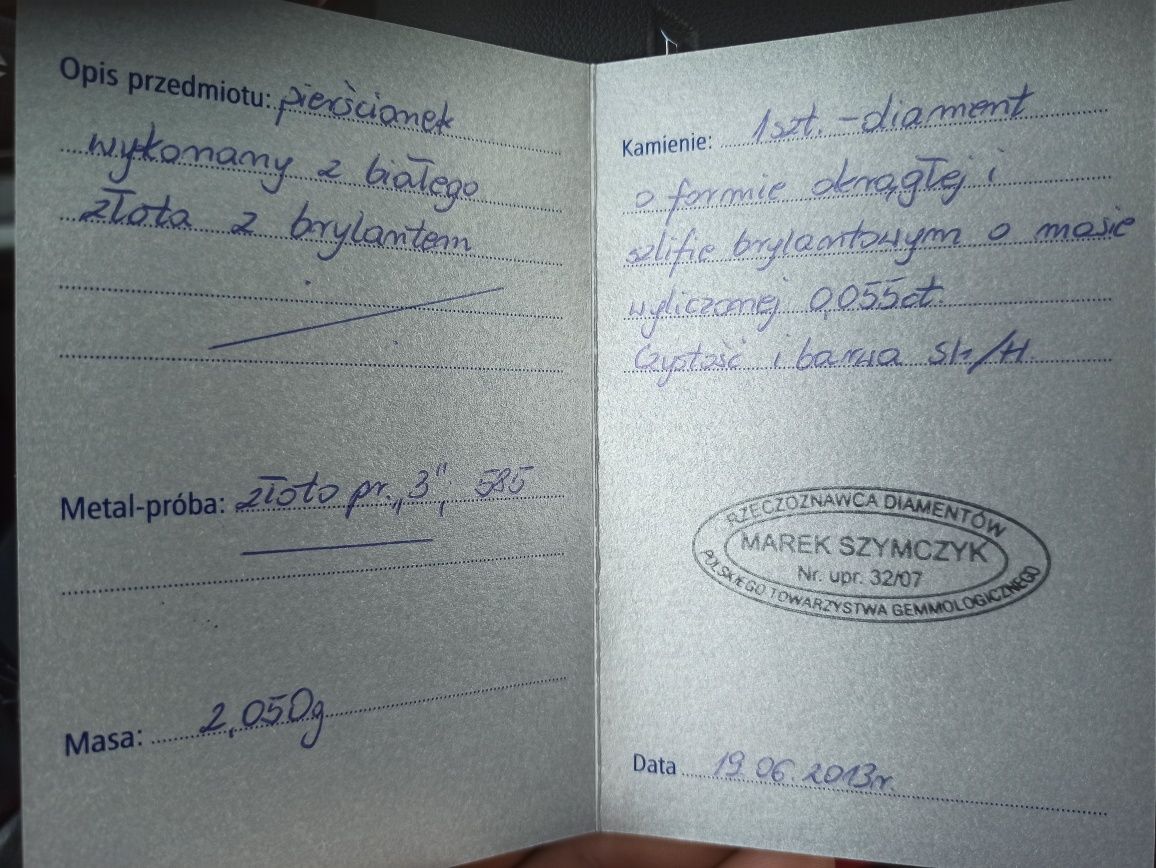 Opis przedmiotu: pierścionek
wykonany z białego
złota z brylantem
Metal-próba: złoto pr. „3”, 585
Masa: 2,050g
Kamienie: 1szt. - diament
o formie okrągłej i
szlifie brylantowym o masie
wyliczonej 0,055ct.
Czystość i barwa SI1/H
RZECZOZNAWCA DIAMENTÓW
MAREK SZYMCZYK
Nr. upr. 32/07
POLSKIEGO TOWARZYSTWA GEMMOLOGICZNEGO
Data 19.06.2013r.